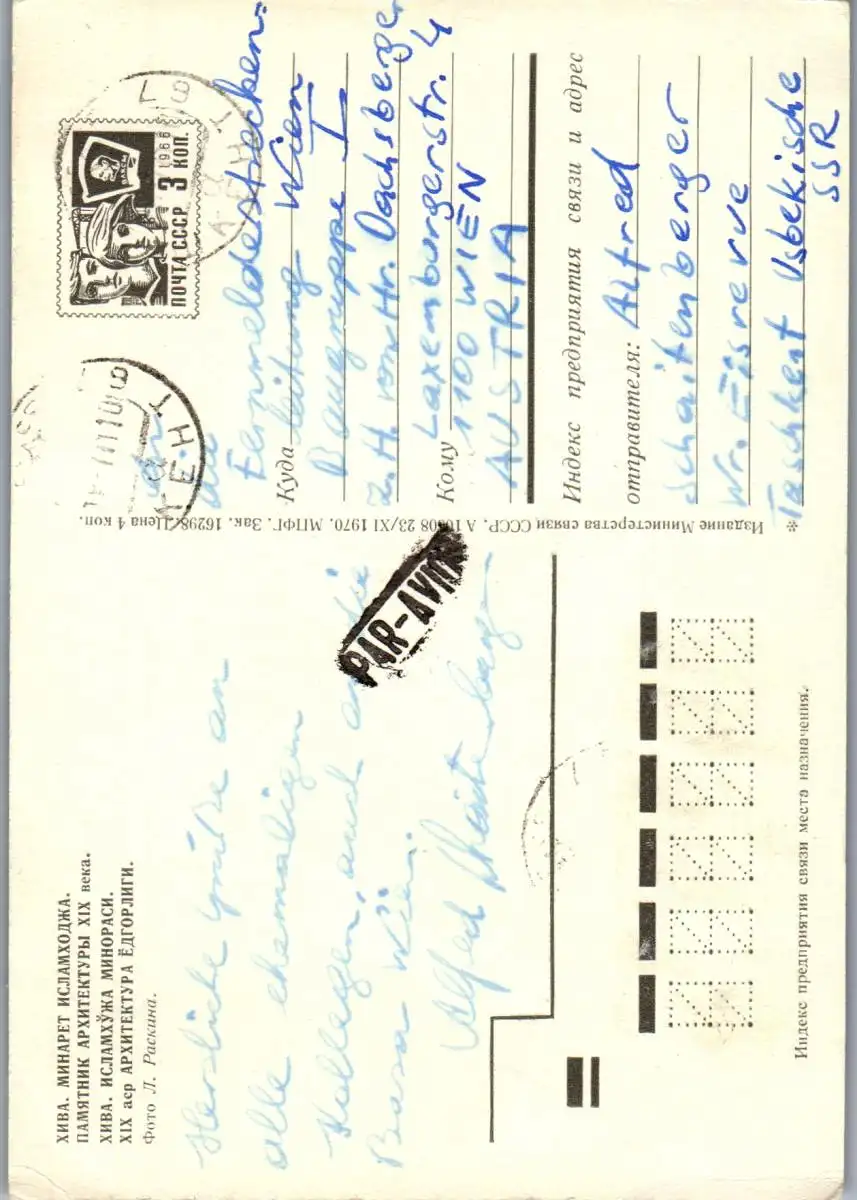 ХИВА. МИНАРЕТ ИСЛАМХОДЖА.
ПАМЯТНИК АРХИТЕКТУРЫ XIX века.
ХИВА. ИСЛАМХЎЖА МИНОРАСИ.
XIX аср АРХИТЕКТУРА ЁДГОРЛИГИ.
Фото Л. Раскина.
Herzliche Grüße an
alle ehemaligen
Kollegen, auch an die
Basa Wien.
Alfred
PAR-AVION
* Издание Министерства связи СССР. А 10808 23/XI 1970. МПФГ. Зак. 16298. Цена 4 коп.
1966
3 КОП.
ПОЧТА СССР
ВЛКСМ
An
die
Fernmeldestrecken-
Куда leitung Wien
Baugruppe I
z.H. von Hr. Dachsberger
Laxenburgerstr. 4
Кому 1100 WIEN
AUSTRIA
Индекс предприятия связи и адрес
отправителя: Alfred
Schaitenberger
Wr. Eisrevue
Taschkent Usbekische
SSR
Индекс предприятия связи места назначения.